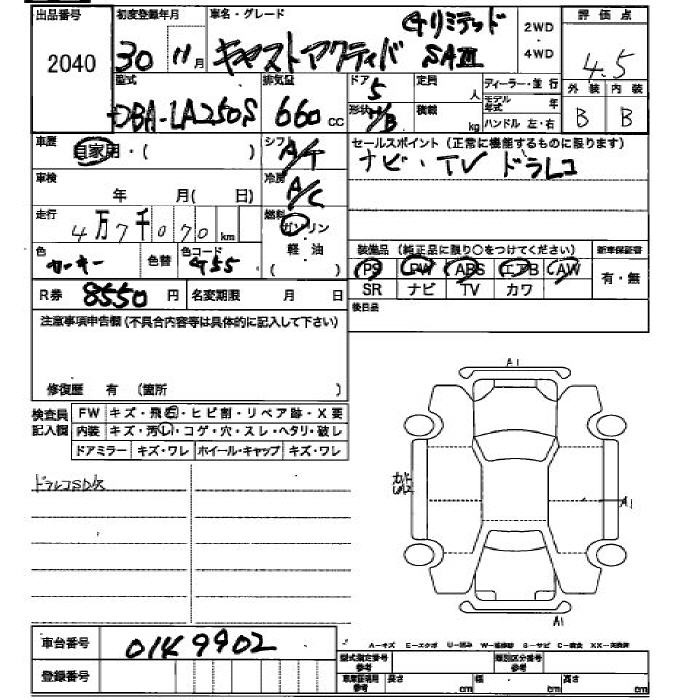 出品番号 初度登録年月 車名・グレード Gリミテッド 2WD 評価点
2040 30 11月 キャストアクティバ SAⅢ ・4WD 4.5
型式 排気量 ドア 5 定員 人 ディーラー・並行 外装 内装
DBA-LA250S 660cc 形状 H/B 積載 kg モデル年式 年 ハンドル 左・右 B B
車歴 自家用・( ) シフト A/T セールスポイント(正常に機能するものに限ります)
ナビ・TV ドラレコ
車検 年 月( 日) 冷房 A/C
走行 4万7千070km 燃料 ガソリン
軽・油
( )
色 カーキー 色替 色コード G55
装備品(純正品に限り○をつけてください) 新車保証書
PS PW ABS エアB AW 有・無
SR ナビ TV カワ
R券 8550円 名変期限 月 日 後日品
注意事項申告欄(不具合内容等は具体的に記入して下さい)
修復歴 有 (箇所 )
検査員 FW キズ・飛石・ヒビ割・リペア跡・X要
記入欄 内装 キズ・汚れ・コゲ・穴・スレ・ヘタリ・破レ
ドアミラー キズ・ワレ ホイール・キャップ キズ・ワレ
ドラレコSD欠
A1
A1
A1
車台番号 0149902
A-キズ E-エクボ
登録番号
型式指定番号 参考 類別区分番号 参考
車庫証明用 参考 長さ cm 幅 cm 高さ cm